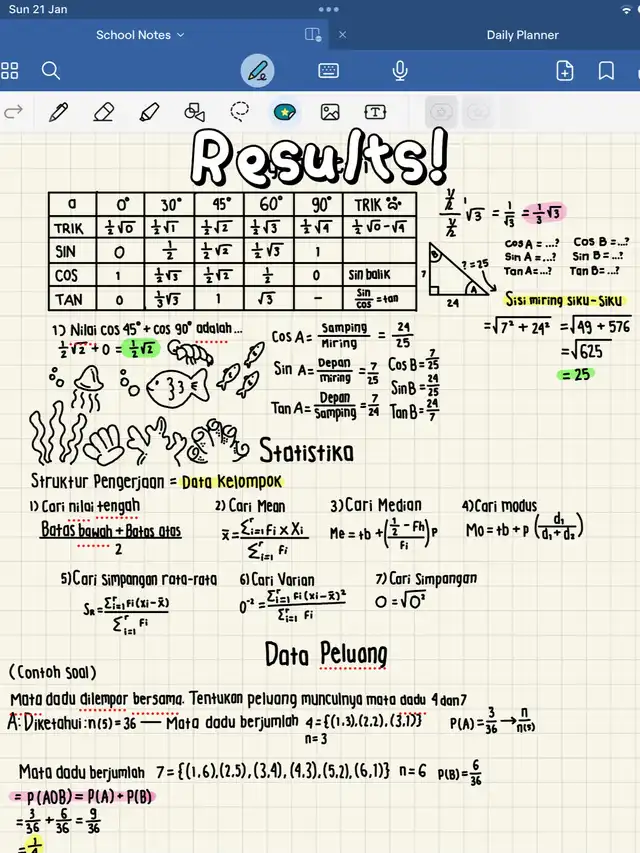 Sun 21 Jan
School Notes
Daily Planner
Results!
a 0° 30° 45° 60° 90° TRIK
TRIK ½√0 ½√1 ½√2 ½√3 ½√4 ½√0 – √4
SIN 0 ½ ½√2 ½√3 1
COS 1 ½√3 ½√2 ½ 0 sin balik
TAN 0 ⅓√3 1 √3 – sin/cos = tan
½/½ · 1/√3 = 1/√3 = ⅓√3
Cos A = ...? Cos B = ...?
Sin A = ...? Sin B = ...?
Tan A = ...? Tan B = ...?
B
7
? = 25
A
24
Sisi miring siku-siku
= √7² + 24² = √49 + 576
= √625
= 25
1) Nilai cos 45° + cos 90° adalah...
½√2 + 0 = ½√2
Cos A = Samping/Miring = 24/25
Sin A = Depan/miring = 7/25 Cos B = 7/25
Sin B = 24/25
Tan A = Depan/Samping = 7/24 Tan B = 24/7
Statistika
Struktur Pengerjaan = Data Kelompok
1) Cari nilai tengah
Batas bawah + Batas atas
2
2) Cari Mean
x̄ = Σʳi=1 Fi x Xi / Σʳi=1 Fi
3) Cari Median
Me = tb + (½ – Fh / Fi) P
4) Cari modus
Mo = tb + p (d₁ / d₁ + d₂)
5) Cari Simpangan rata-rata
SR = Σʳi=1 Fi (xi – x̄) / Σʳi=1 Fi
6) Cari Varian
O⁻² = Σʳi=1 Fi (xi – x̄)² / Σʳi=1 Fi
7) Cari Simpangan
O = √O²
Data Peluang
(Contoh Soal)
Mata dadu dilempar bersama. Tentukan peluang munculnya mata dadu 4 dan 7
A: Diketahui : n(s) = 36 — Mata dadu berjumlah 4 = {(1,3),(2,2),(3,1)} P(A) = 3/36 → n/n(s)
n = 3
Mata dadu berjumlah 7 = {(1,6),(2,5),(3,4),(4,3),(5,2),(6,1)} n = 6 P(B) = 6/36
= P(AOB) = P(A) + P(B)
= 3/36 + 6/36 = 9/36
= 1/4